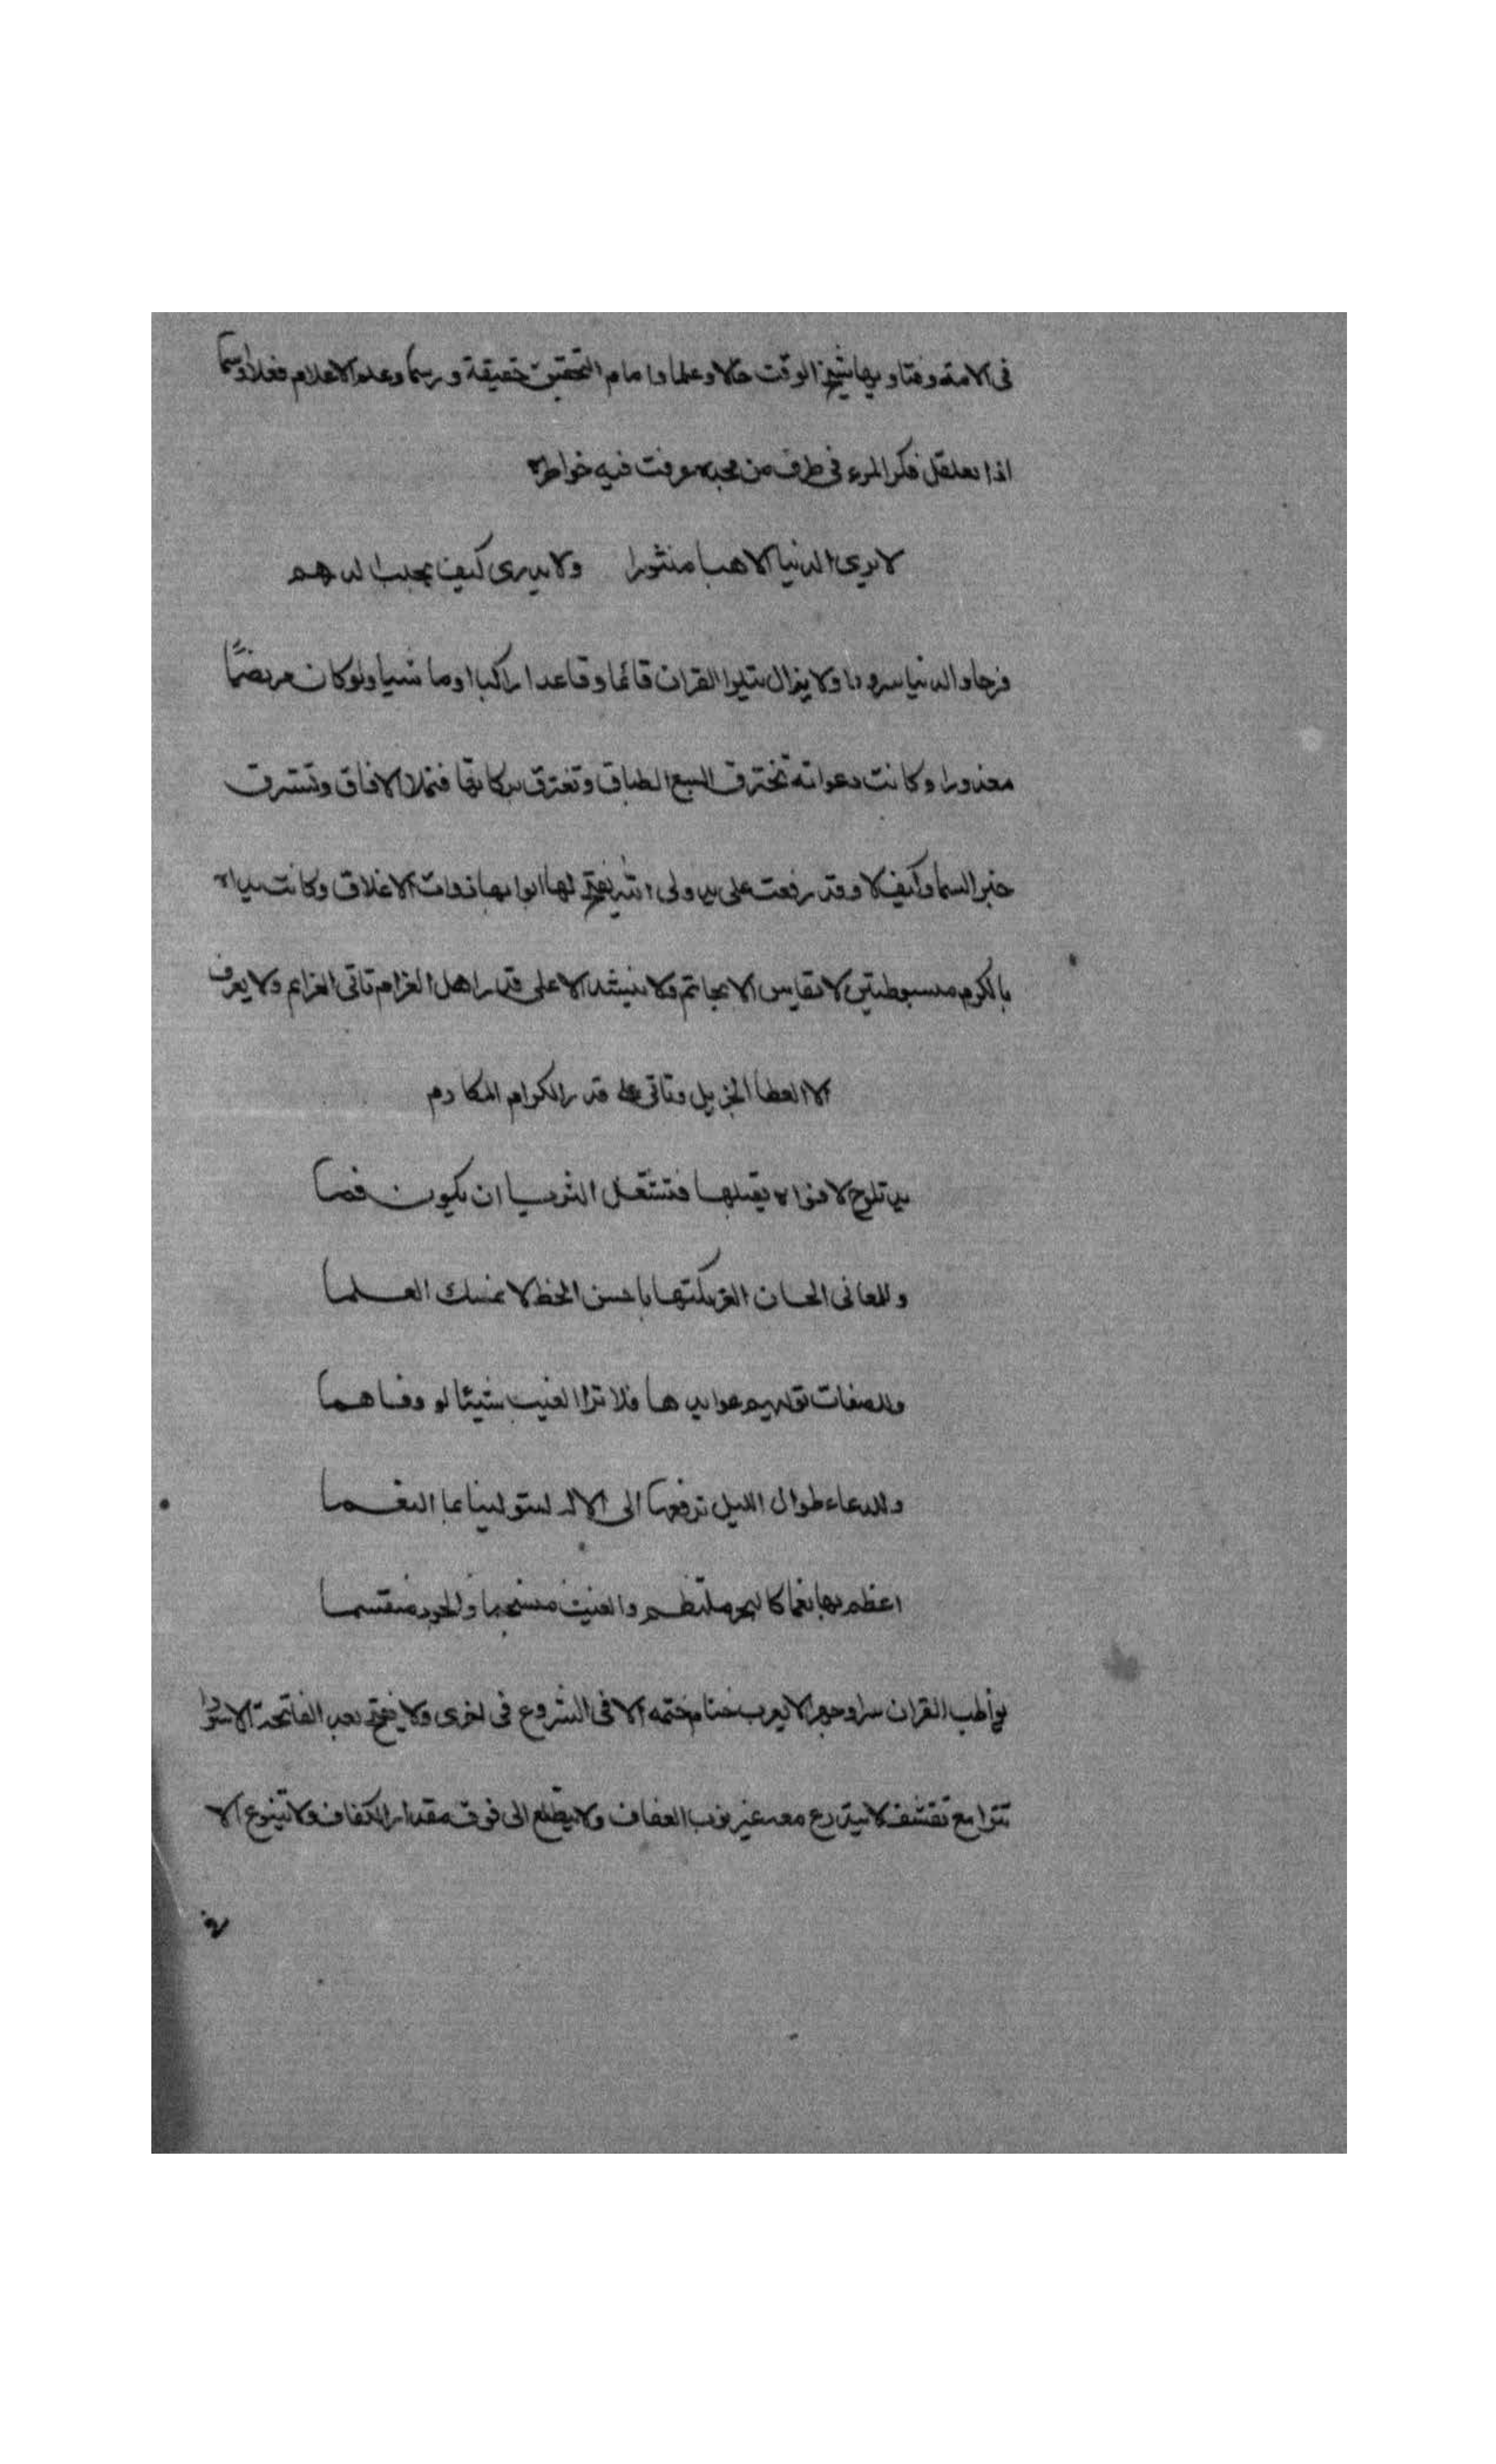 في الامة وفتاويها شيخ الوقت حالا وعلما وامام التحقيق حقيقة ورسما وعلم الاعلام فعلا واسما
اذا تغلغل فكر المرء في طرف من مجده غرقت فيه خواطره
لا يري الدنيا الا هبا منثورا ولا يدرى كيف يجلب الدرهم
فرحا والدنيا سرورا ولا يزال يتلوا القران قائما وقاعدا راكبا او ماشيا ولو كان مريضا
معذورا وكانت دعواته تخترق السبع الطباق وتفترق بركاتها فتملا الافاق وتسترق
خبر السما وكيف لا وقد رفعت على يد ولى لها ابوابها ذوات الاغلاق وكانت يداه
بالكرم مبسوطتين لا تقاس الا بحاتم ولا ينشد الا على قدر اهل العزام تاتى العزايم ولا يعرف
الا العطا الجزيل وتاتى على قدر الكرام المكارم
يد تلوح لافواه يقبلها فتستقل الثريا ان يكون فما
وللمعاني الحسان الغر يكتبها باحسن الخط لا تمسك القلما
وللصفات عوايدها فلا ترا الغيب شيئا لو
وللدعاء طوال الليل ترفعها الى الاله ليستو لينا بها النعما
اعظم بها نعما كالبحر ملتطم والغيث منسجما والجود منقسما
يواظب القران سرا وجهرا لا يعرب ختام ختمه الا في الشروع في اخرى ولا يفتح بعد الفاتحة الا سورا
تترا مع تقشف لا يتدرع معه غير ثوب العفاف ولا يطلع الى فوق مقدار الكفاف ولا يتنوع الا